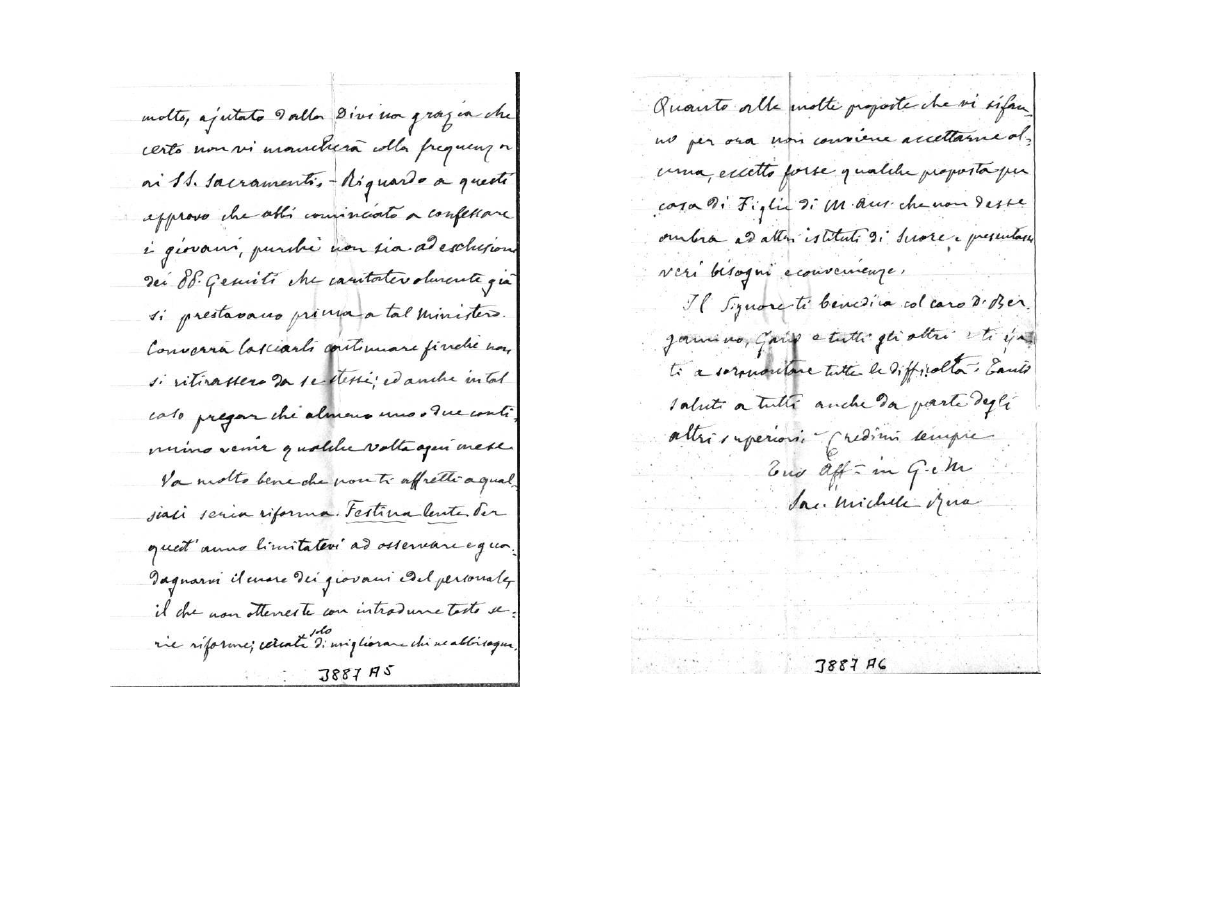 molto, ajutato dalla Divina grazia che
certo non vi mancherà colla frequenza
ai SS. Sacramenti. - Riguardo a questi
approvo che abbi cominciato a confessare
i giovani, purché non sia ad esclusione
dei PP. Gesuiti che caritatevolmente già
si prestavano prima a tal Ministero.
Converrà lasciarli continuare finché non
si ritirassero da se stessi; ed anche in tal
caso pregar che almeno uno o due conti-
nuino venir qualche volta ogni mese
Va molto bene che non ti affretti a qual-
siasi seria riforma. Festina lente. Per
quest' anno limitatevi ad osservare e gua-
dagnarvi il cuore dei giovani e del personale,
il che non otterreste con introdurre tosto se-
rie riforme; cercate solo di migliorare chi ne abbisogna.
3887 A5
Quanto alle molte proposte che vi si fan-
no per ora non conviene accettarne al-
cuna, eccetto forse qualche proposta per
casa di Figlie di M. Aus. che non desse
ombra ad altri istituti di Suore, e presentasse
veri bisogni e convenienze.
Il Signore ti benedica col caro D. Ber
gamino, e tutti gli altri e ti aju
ti a sormontare tutte le difficoltà. Tanti
saluti a tutti anche da parte degli
altri superiori. - Credimi sempre
Tuo Aff. in G. e M
Sac. Michele Rua
3887 A6